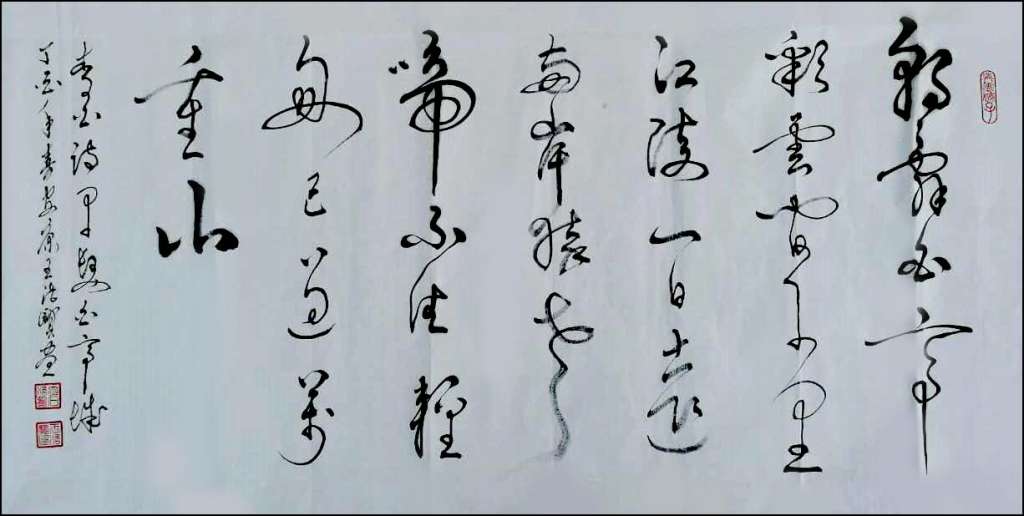 朝辭白帝
彩雲間千里
江陵一日還
兩岸猿聲
啼不住輕
舟已過萬
重山
李白詩早發白帝城
丁酉年春安康王浩賢書